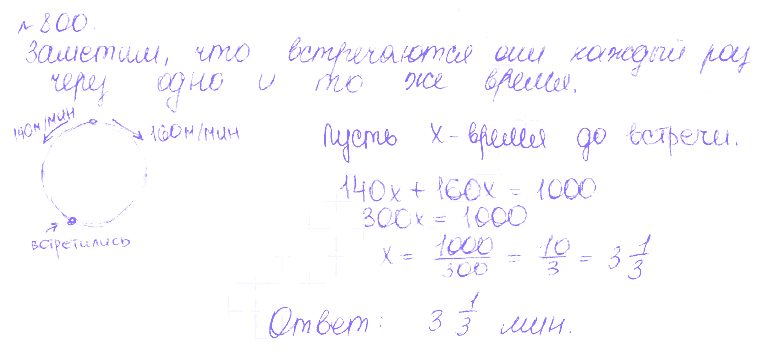 №800.
Заметим, что встречаются они каждый раз
через одно и то же время.
140м/мин
160м/мин
встретились
Пусть x-время до встречи.
140x + 160x = 1000
300x = 1000
x = 1000/300 = 10/3 = 3 1/3
Ответ: 3 1/3 мин.